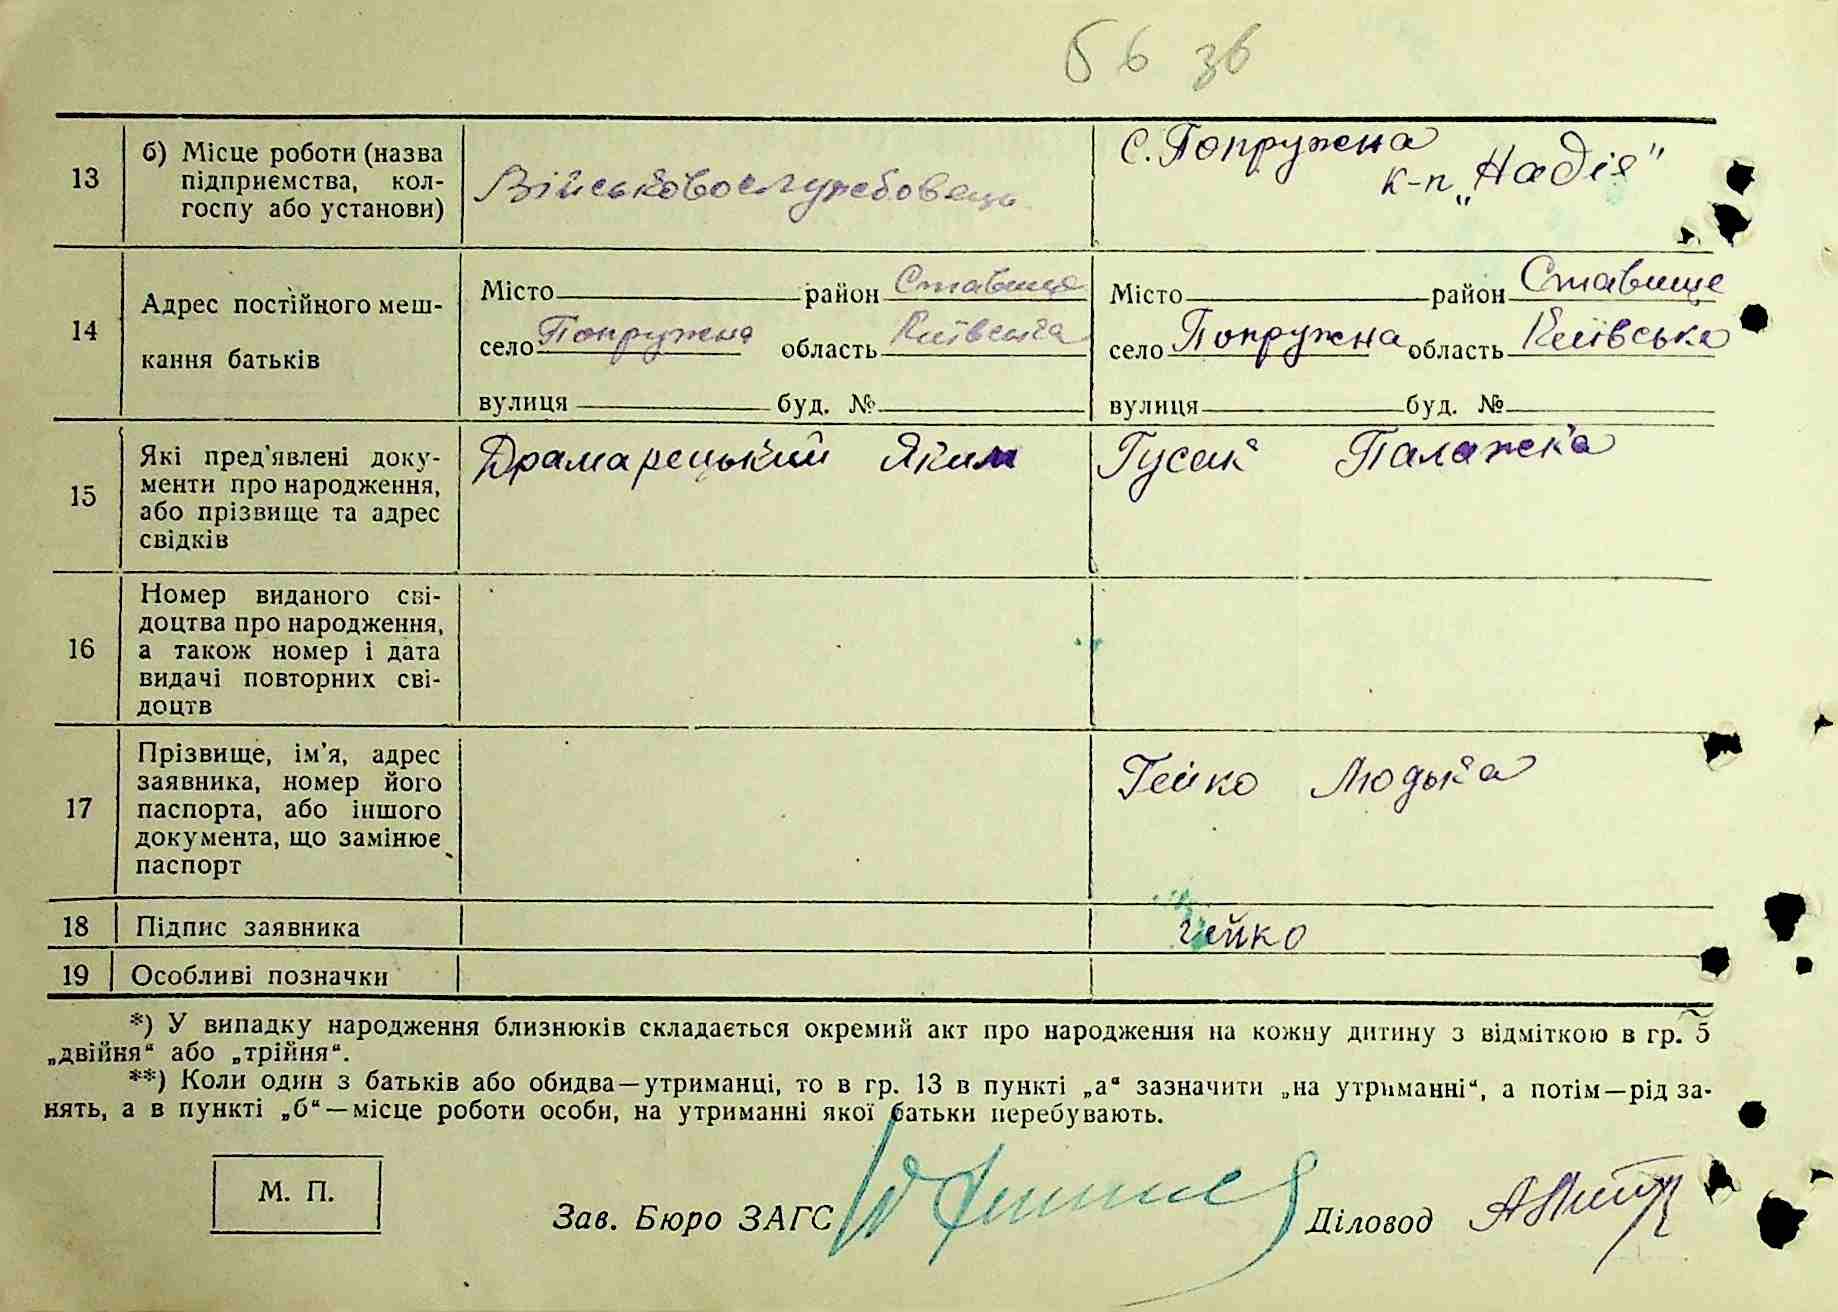 56 зв
13
б) Місце роботи (назва
підприємства, кол-
госпу або установи)
Військовослужбовець
с. Попружена
к-п „Надія"
14
Адрес постійного меш-
кання батьків
Місто район Ставище
село Попружена область Київська
вулиця буд. №
Місто район Ставище
село Попружена область Київська
вулиця буд. №
15
Які пред'явлені доку-
менти про народження,
або прізвище та адрес
свідків
Драмарецький Яким
Гусак Палажка
16
Номер виданого сві-
доцтва про народження,
а також номер і дата
видачі повторних сві-
доцтв
17
Прізвище, ім'я, адрес
заявника, номер його
паспорта, або іншого
документа, що замінює
паспорт
Гейко Людька
18
Підпис заявника
гейко
19
Особливі позначки
*) У випадку народження близнюків складається окремий акт про народження на кожну дитину з відміткою в гр. 5
„двійня“ або „трійня“.
**) Коли один з батьків або обидва—утриманці, то в гр. 13 в пункті „а“ зазначити „на утриманні“, а потім—рід за-
нять, а в пункті „б“—місце роботи особи, на утриманні якої батьки перебувають.
М. П.
Зав. Бюро ЗАГС
Діловод